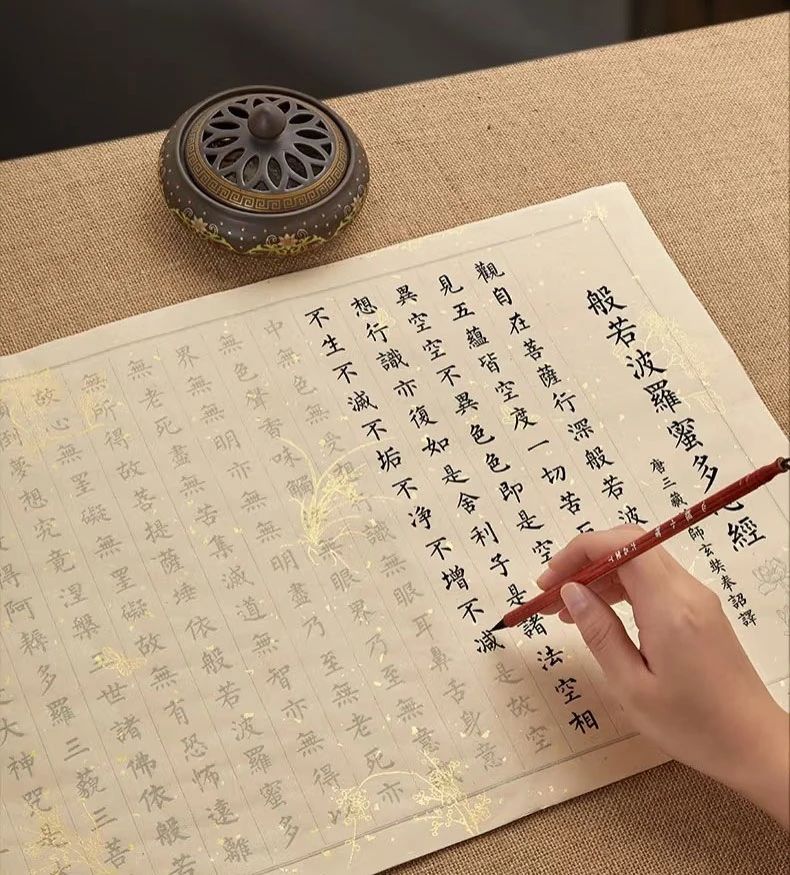 般若波羅蜜多心經
唐三藏師玄奘奉詔譯
觀自在菩薩行深般若波
見五蘊皆空度一切苦厄
異空空不異色色即是空
想行識亦復如是舍利子是諸法空相
不生不滅不垢不净不增不減是故空
中無色無受想行識無眼耳鼻舌身意
無色聲香味觸法無眼界乃至無意
界無無明亦無無明盡乃至無老死亦
無老死盡無苦集滅道無智亦無得以
無所得故菩提薩埵依般若波羅蜜多
故心無罣礙無罣礙故無有恐怖遠離
倒夢想究竟涅槃三世諸佛依般若
得阿耨多羅三藐三菩
大神咒是